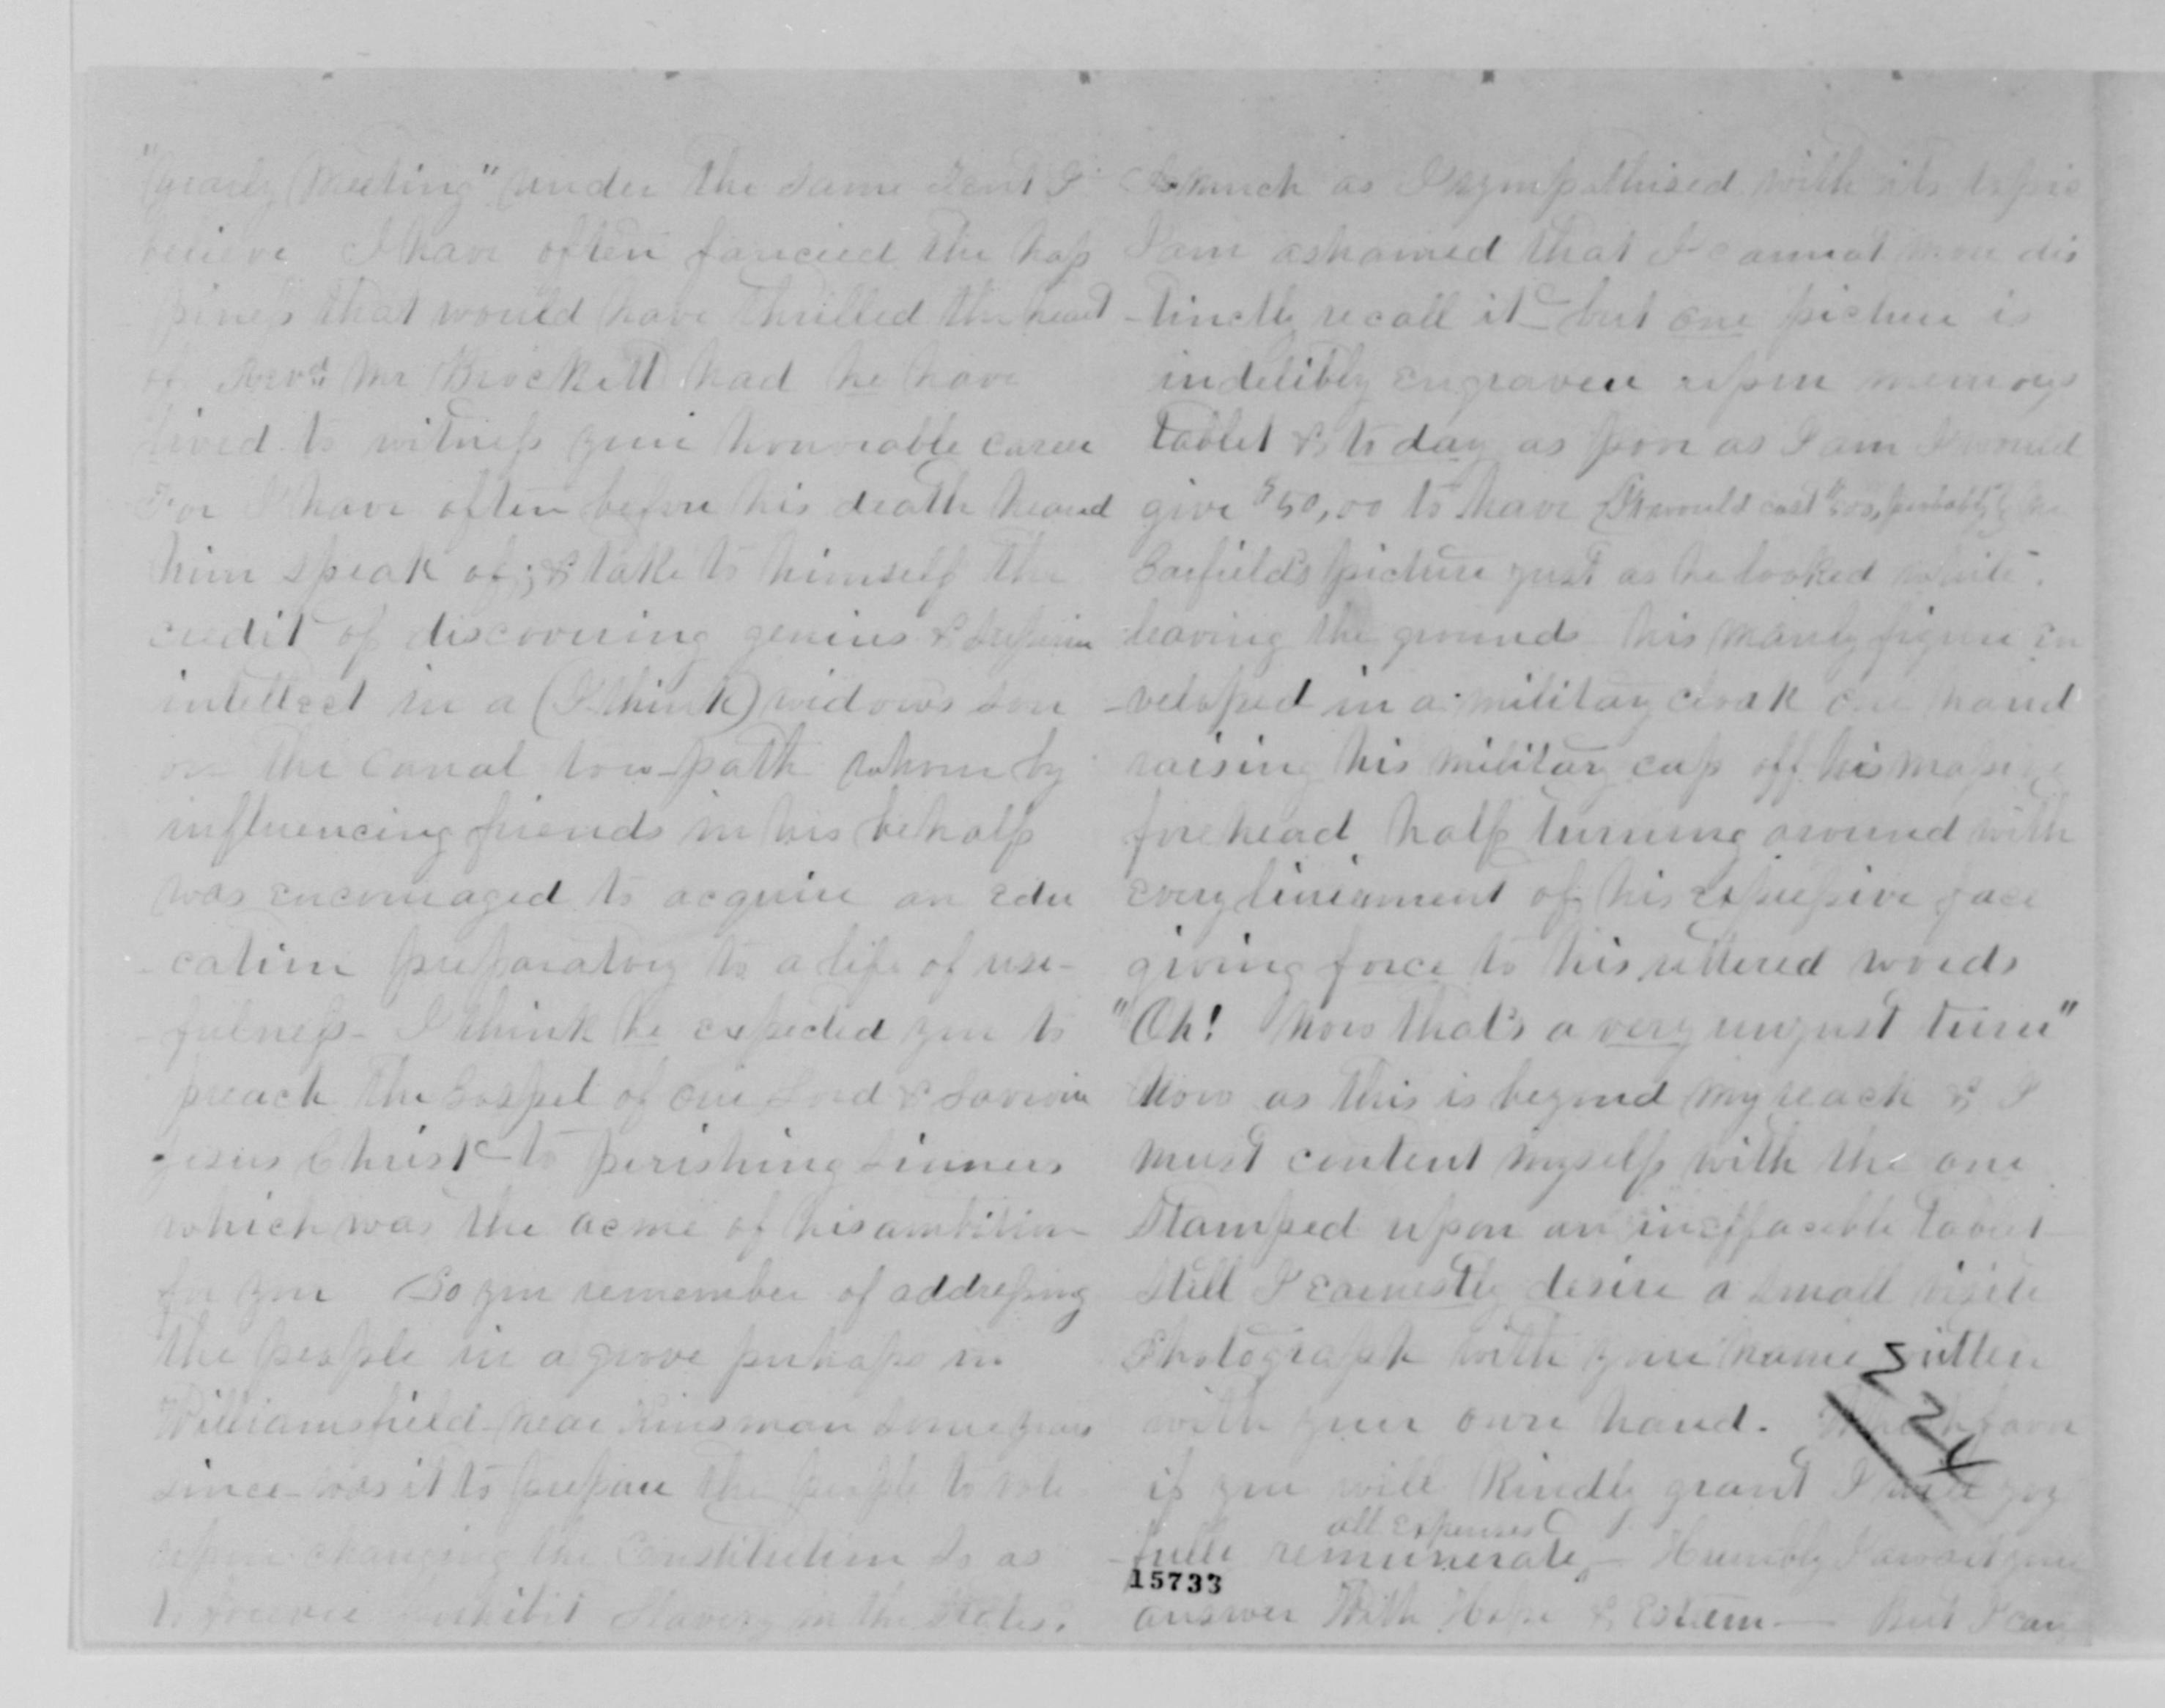 "Yearly Meeting" under the same tent I
believe I have often fancied the hap
piness that would have thrilled the heart
of Mr Brockett had he have
lived to witness your honorable career
For I have often before his death heard
him speak of; & take to himself the
credit of discovering genius & superior
intellect in a (I think) widows son
on the canal tow-path whom by
influencing friends in his behalf
was encouraged to acquire an edu
-cation preparatory to a life of use-
-fulness- I think he expected you to
preach the Gospel of our Lord & Saviour
Jesus Christ to perishing sinners
which was the acme of his ambition
for you Do you remember of addressing
the people in a grove perhaps in
Williamsfield near Kinsman some years
since- was it to prepare the people to vote
upon changing the Constitution so as
to forever prohibit Slavery in the States.
As much as I sympathised with its topic
I am ashamed that I cannot now dis
-tinctly recall it- but one picture is
indelibly engraven upon memorys
tablet & to day as poor as I am I would
give $50,00 to have (It would cost probably)
Garfield's picture just as he looked while
leaving the ground his manly figure en
-veloped in a military cloak one hand
raising his military cap off his massive
forehead half turning around with
every liniament of his expressive face
giving force to his uttered words
"Oh! Now that's a very unjust turn"
Now as this is beyond my reach & I
must content myself with the one
stamped upon an ineffaceble tablet
still I earnestly desire a small visite
Photograph with your name written
with your own hand. Which favor
if you will kindly grant I will joy
all expenses
-fully remunerate,- Humbly I await your
15733
answer With Hope & Esteem— But I can
224